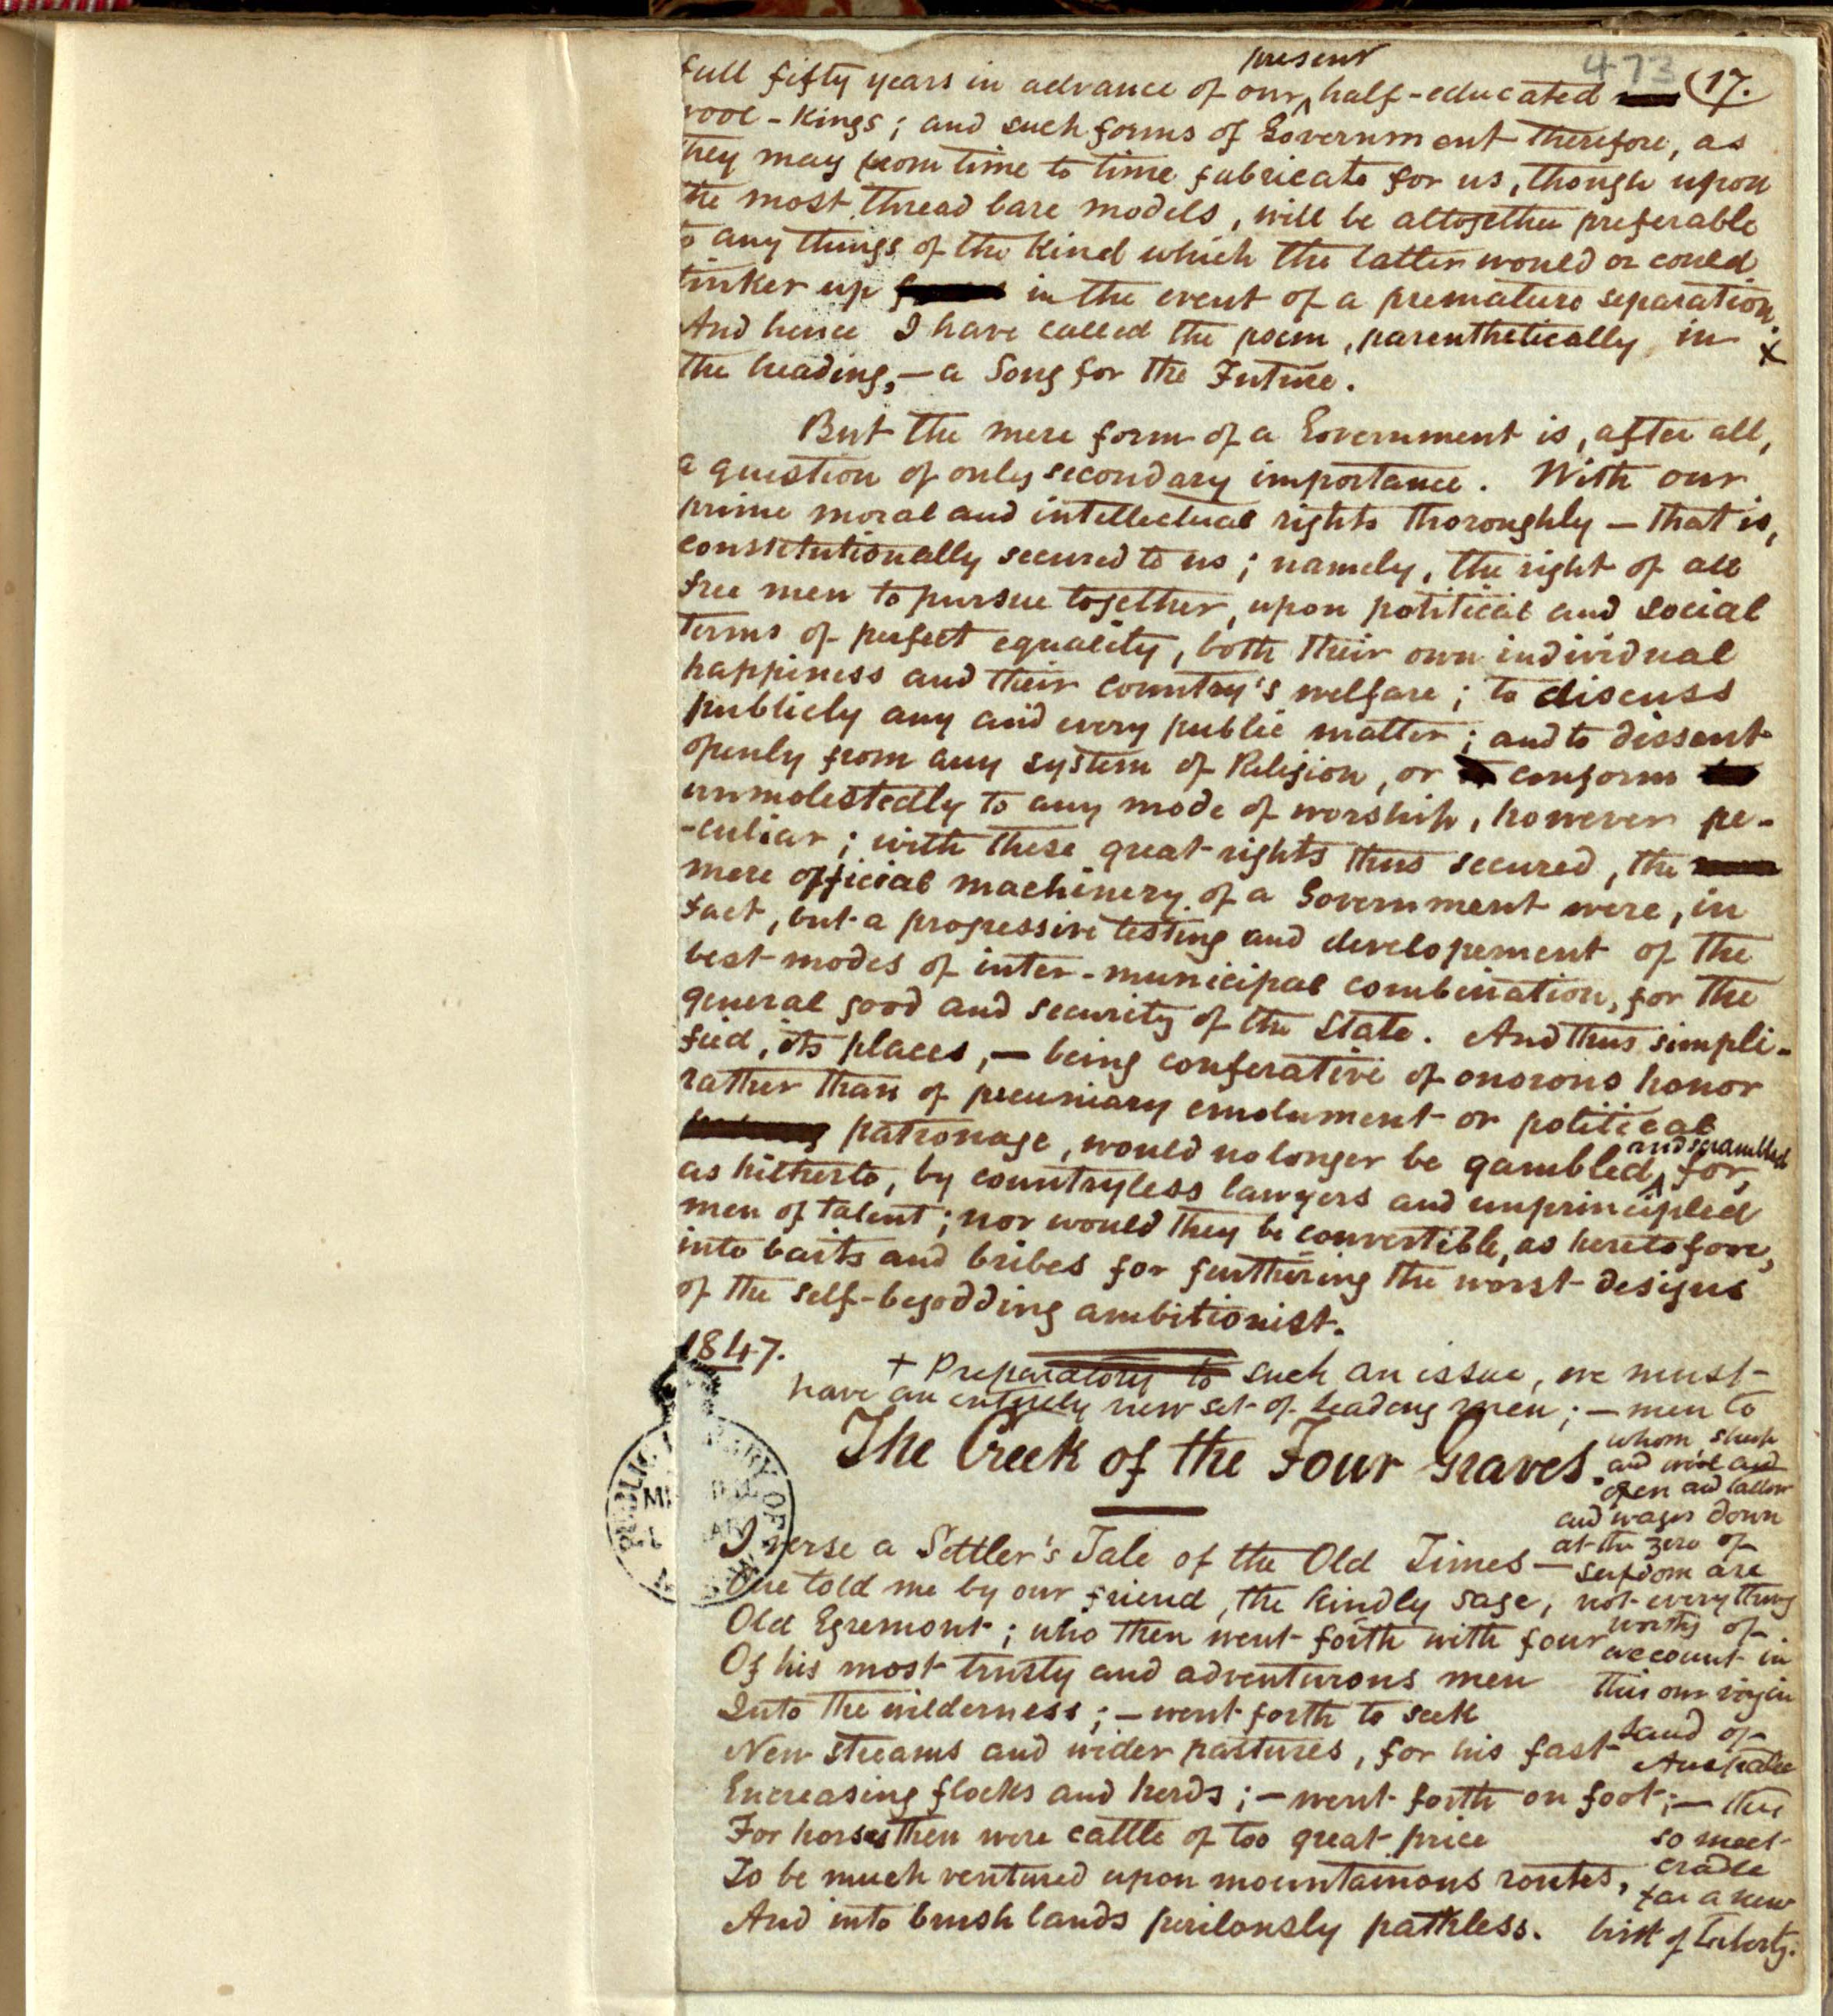 present
473 (17.
full fifty years in advance of our half-educated
wool-kings; and such forms of Government therefore, as
they may from time to time fabricate for us, though upon
the most thread bare models, will be altogether preferable
to any things of the kind which the latter would or could
tinker up in the event of a premature separation.
And hence I have called the poem, parenthetically in
the heading,—a Song for the Future. +
But the mere form of a Government is, after all,
a question of only secondary importance. With our
prime moral and intellectual rights thoroughly — that is,
constitutionally secured to us; namely, the right of all
free men to pursue together, upon political and social
terms of perfect equality, both their own individual
happiness and their country's welfare; to discuss
publicly any and every public matter; and to dissent
openly from any system of Religion, or conform
unmolestedly to any mode of worship, however pe-
-culiar; with these great rights thus secured, the
mere official machinery of a Government were, in
fact, but a progressive testing and developement of the
best modes of inter-municipal combination, for the
general good and security of the State. And thus simpli-
fied, its places,— being conferative of onorous honor
rather than of pecuniary emolument or political
and scrambled
patronage, would no longer be gambled for,
as hitherto, by countryless lawyers and unprincipled
men of talent; nor would they be convertible, as heretofore,
into baits and bribes for furthering the worst designs
of the self-begodding ambitionist.
1847.
+ Preparatory to such an issue, we must
have an entirely new set of leading men;— men to
whom sheep
and wool and
oxen and tallow
and wages down
at the zero of
serfdom are
not every thing
worthy of
account in
this our virgin
Land of
Australia
— this
so meet
cradle
for a new
birth of Liberty.
The Creek of the Four Graves.
PUBLIC LIBRARY OF
I verse a Settler's Tale of the Old Times—
One told me by our friend, the kindly sage,
Old Egremont; who then went forth with four
Of his most trusty and adventurous men
Into the wilderness;—went forth to seek
New streams and wider pastures, for his fast
Encreasing flocks and herds;—went forth on foot;
For horses then were cattle of too great price
To be much ventured upon mountainous routes,
And into brush lands perilously pathless.